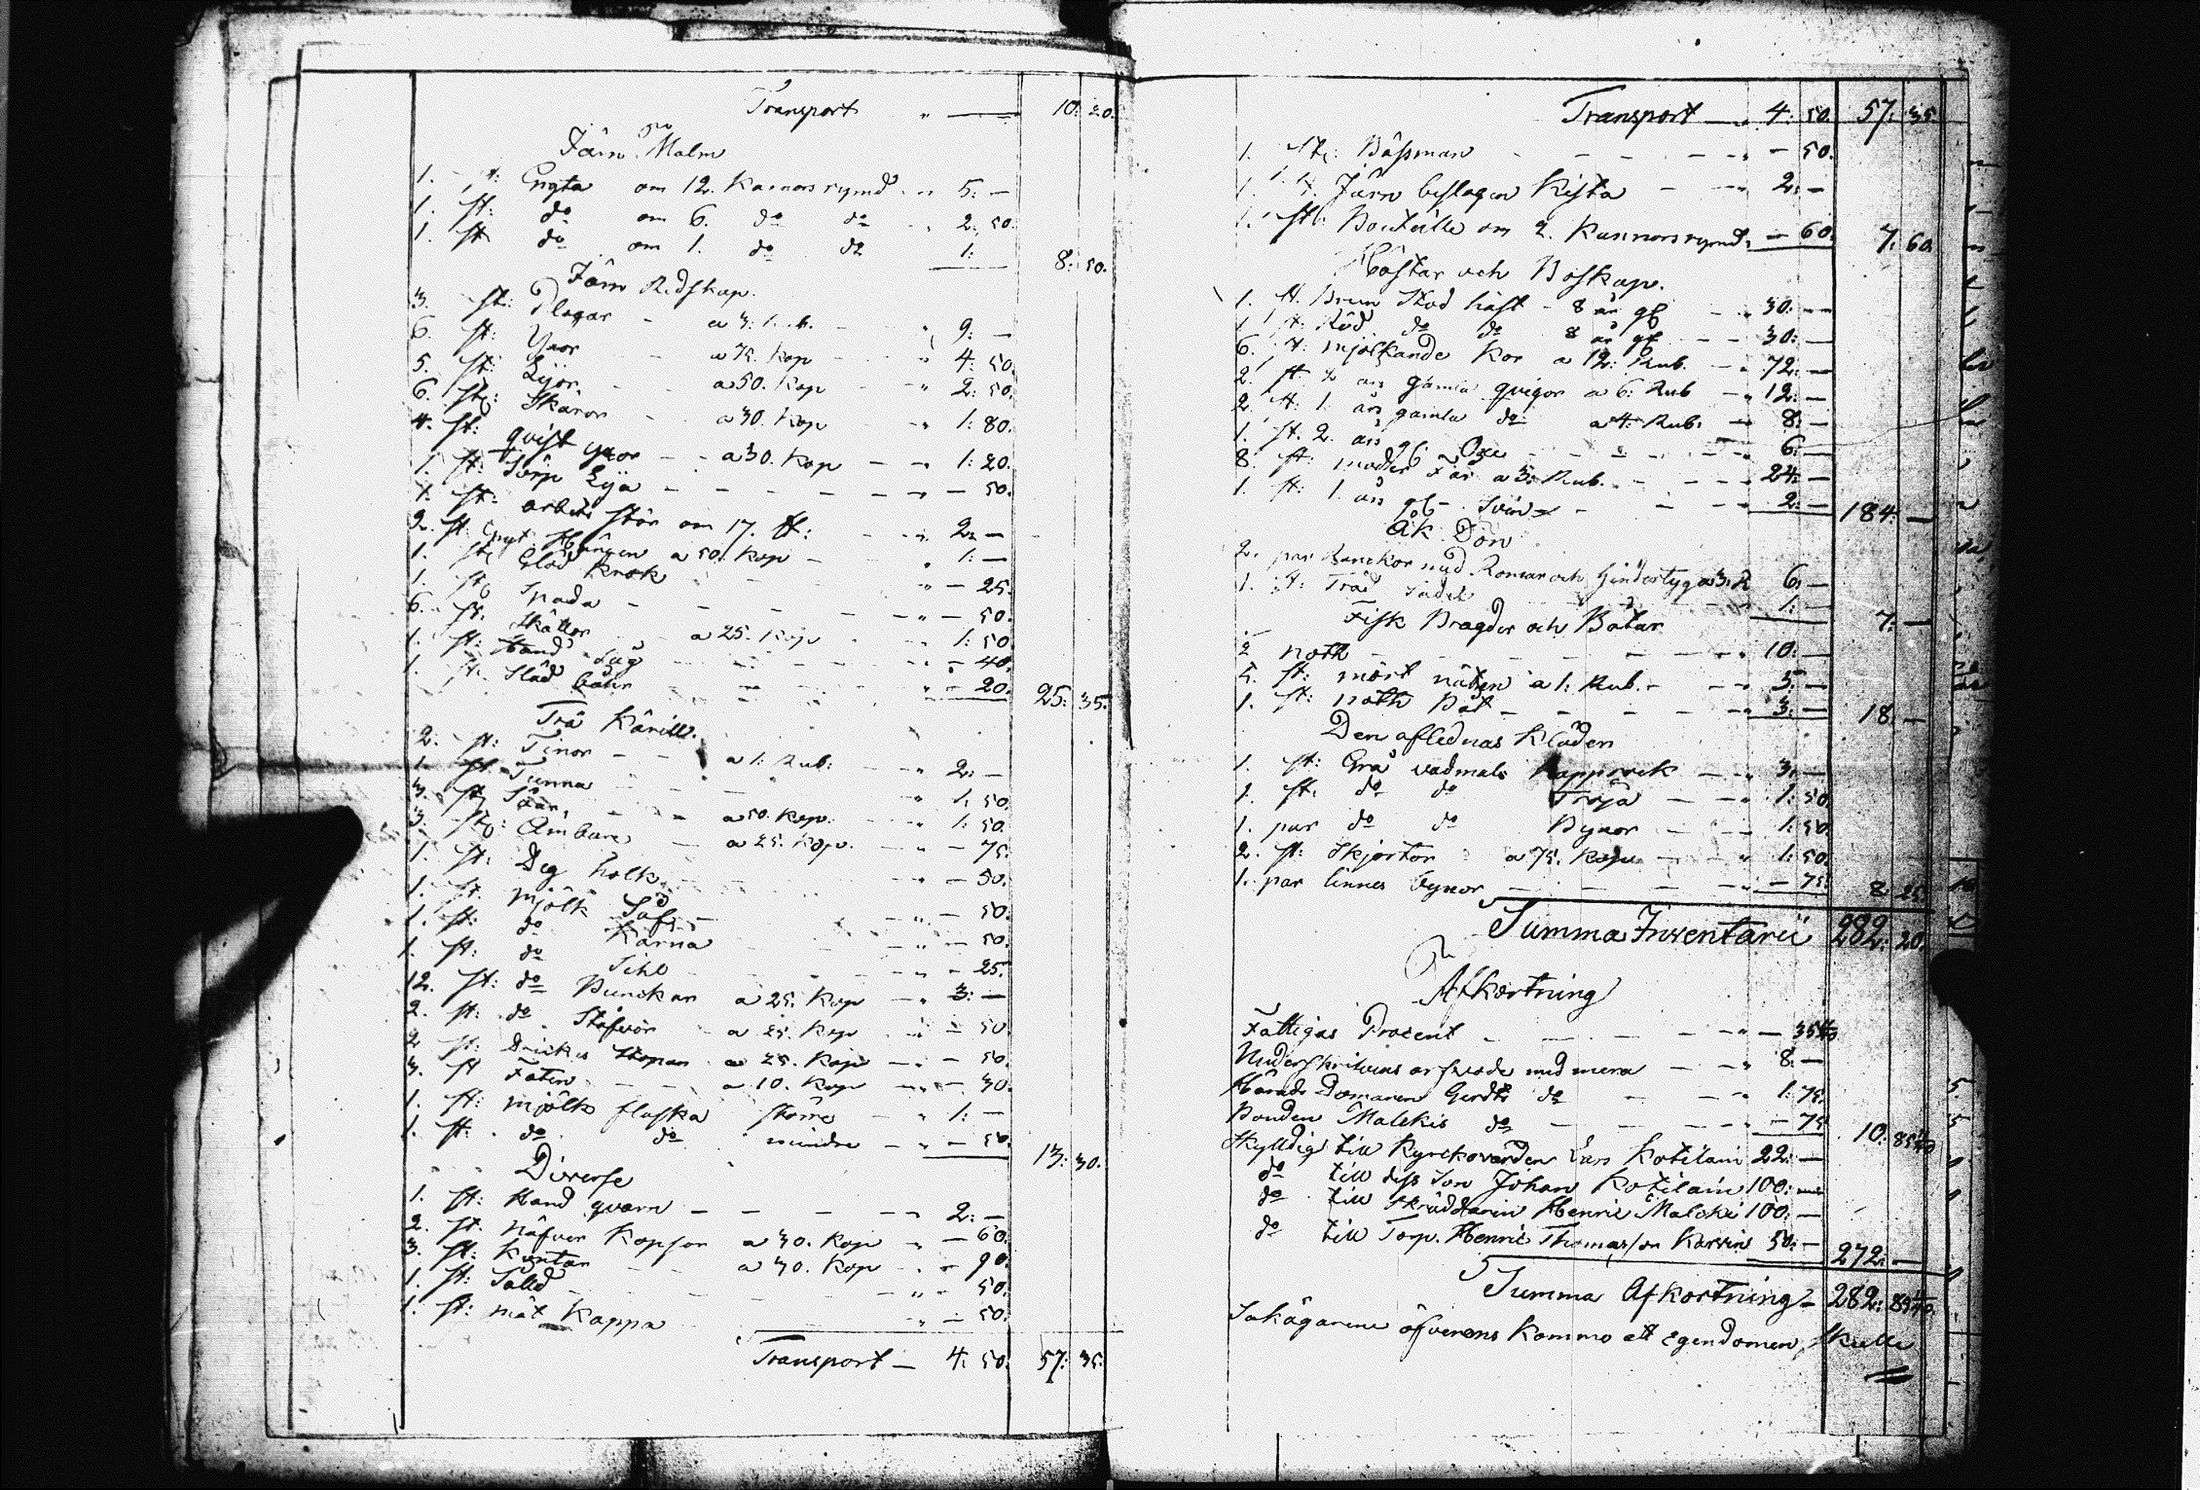 Transport " — 10: 20.
Järn Malm
1. st: Gryta om 12. Kannors rymd " 5: —
1. st: do om 6. do do " 2: 50.
1. st: do om 1. do do 1: — 8: 50.
Järn Redskap.
3. st: Plogar a 3. Rub. " 9: —
6. st: Yxor a 75. Kop " 4: 50.
5. st: Lijor a 50. Kop " 2: 50.
6. st: Skäror a 30. Kop " 1: 80.
4. st: qvist yxor a 30. Kop — " 1: 20.
1. st: Lija — — — — 50.
1. st: arbets stör om 17. ℔: 2: —
2. st: Gryt Hängen a 50. Kop " 1: —
1. st: Glöd Krok " — 25.
1. st: Spada — — — " — 50.
6. st: Skällor a 25. Kop 1: 50
1. st: Hand Såg " — 40.
1. st: " — 20. 25: 35.
Trä Kärill.
2. st: Tinor a 1: Rub: " 2: —
1. st: Tunna " 1: 50.
3. st: Såar a 50. Kop. " 1: 50.
3. st: Ämbare a 25. Kop. " — 75.
1. st: Deg holk " — 50.
1. st: Mjölk Så " — 50.
1. st: do Kärna " — 50.
1. st: do Sihl " — 25.
12. st: do Bunckar a 25. Kop " 3: —
2. st: do Stäfvor a 25. Kop " — 50.
2 st: Drickes Stopar a 25. Kop " — 50.
3. st Faten a 10. Kop " — 30.
1. st: Mjölk flaska större " 1: —
1. st: do do mindre — " — 50. 13: 30.
Diverse
1. st: Hand qvarn — — — — " 2: —
2. st: Näfver Kopsor a 30. Kop " — 60.
3. st: Kontar a 30. Kop — 90.
1. st: Såld — " — 50.
1. st: mät Kappa " — 50.
Transport — 4: 50. 57: 35.
Transport — " 4: 50. 57: 35.
1. st: Bössman — — — " — 50.
1. st. Järn beslagen Kista — " 2: —
1. st: Bouteille om 2. Kannors rymd " — 60. 7: 60.
Hästar och Boskap.
1. st. Brun Stod häst — 8 år gl — " 30: —
1. st: Röd do do 8 år gl — " 30: —
6. st: mjölkande Kor a 12: Rub. — " 72: —
2. st. 2 års gamla qvigor a 6: Rub — " 12: —
2. st: 1 års gamla do a 4: Rub. — 8: —
1. st. 2. års gl Oxe — " 6: —
8. st: moder Får a 3: Rub. — " 24: —
1. st: 1. års gl Svin — 2: — 184: —
Åk Don
2. par med Remar och a 3. R 6: —
1. st: Träd Sadel 1: — 7: —
Fisk Bragder och Båtar
½ noth — — — — " 10: —
5. st: mört näten a 1: Rub. — " 5: —
1. st: noth Båt — — — — " 3: — 18: —
Den aflednas Kläden
1. st: Grå vadmals Kapprock — " 3: —
1. st: do do Tröja — " 1: 50.
1. par do do Byxor — " 1: 50.
2. st: Skjortor a 75. Kop " 1: 50.
1. par linnes byxor — — " — 75. 8: 25.
Summa Inventarii 282: 20.
Afkortning
Fattigas Procent — — — " — 35
Underskrifvens arfvode med mera — " 8: —
Härads Domaren Gerdts do — — " 1: 75.
Bonden Malskis do — — — " — 75 10: 85
Skylldig till Kyrckovärden Lars Kotilain 22: —
do till dess Son Johan Kotilain 100: —
do till Skräddaren Henric Malski 100: —
do till Torp. Henric Thomasson Karvin 50: — 272: —
Summa Afkortning — 282: 85
Sakägarene öfverens Kommo att Egendomen skulle